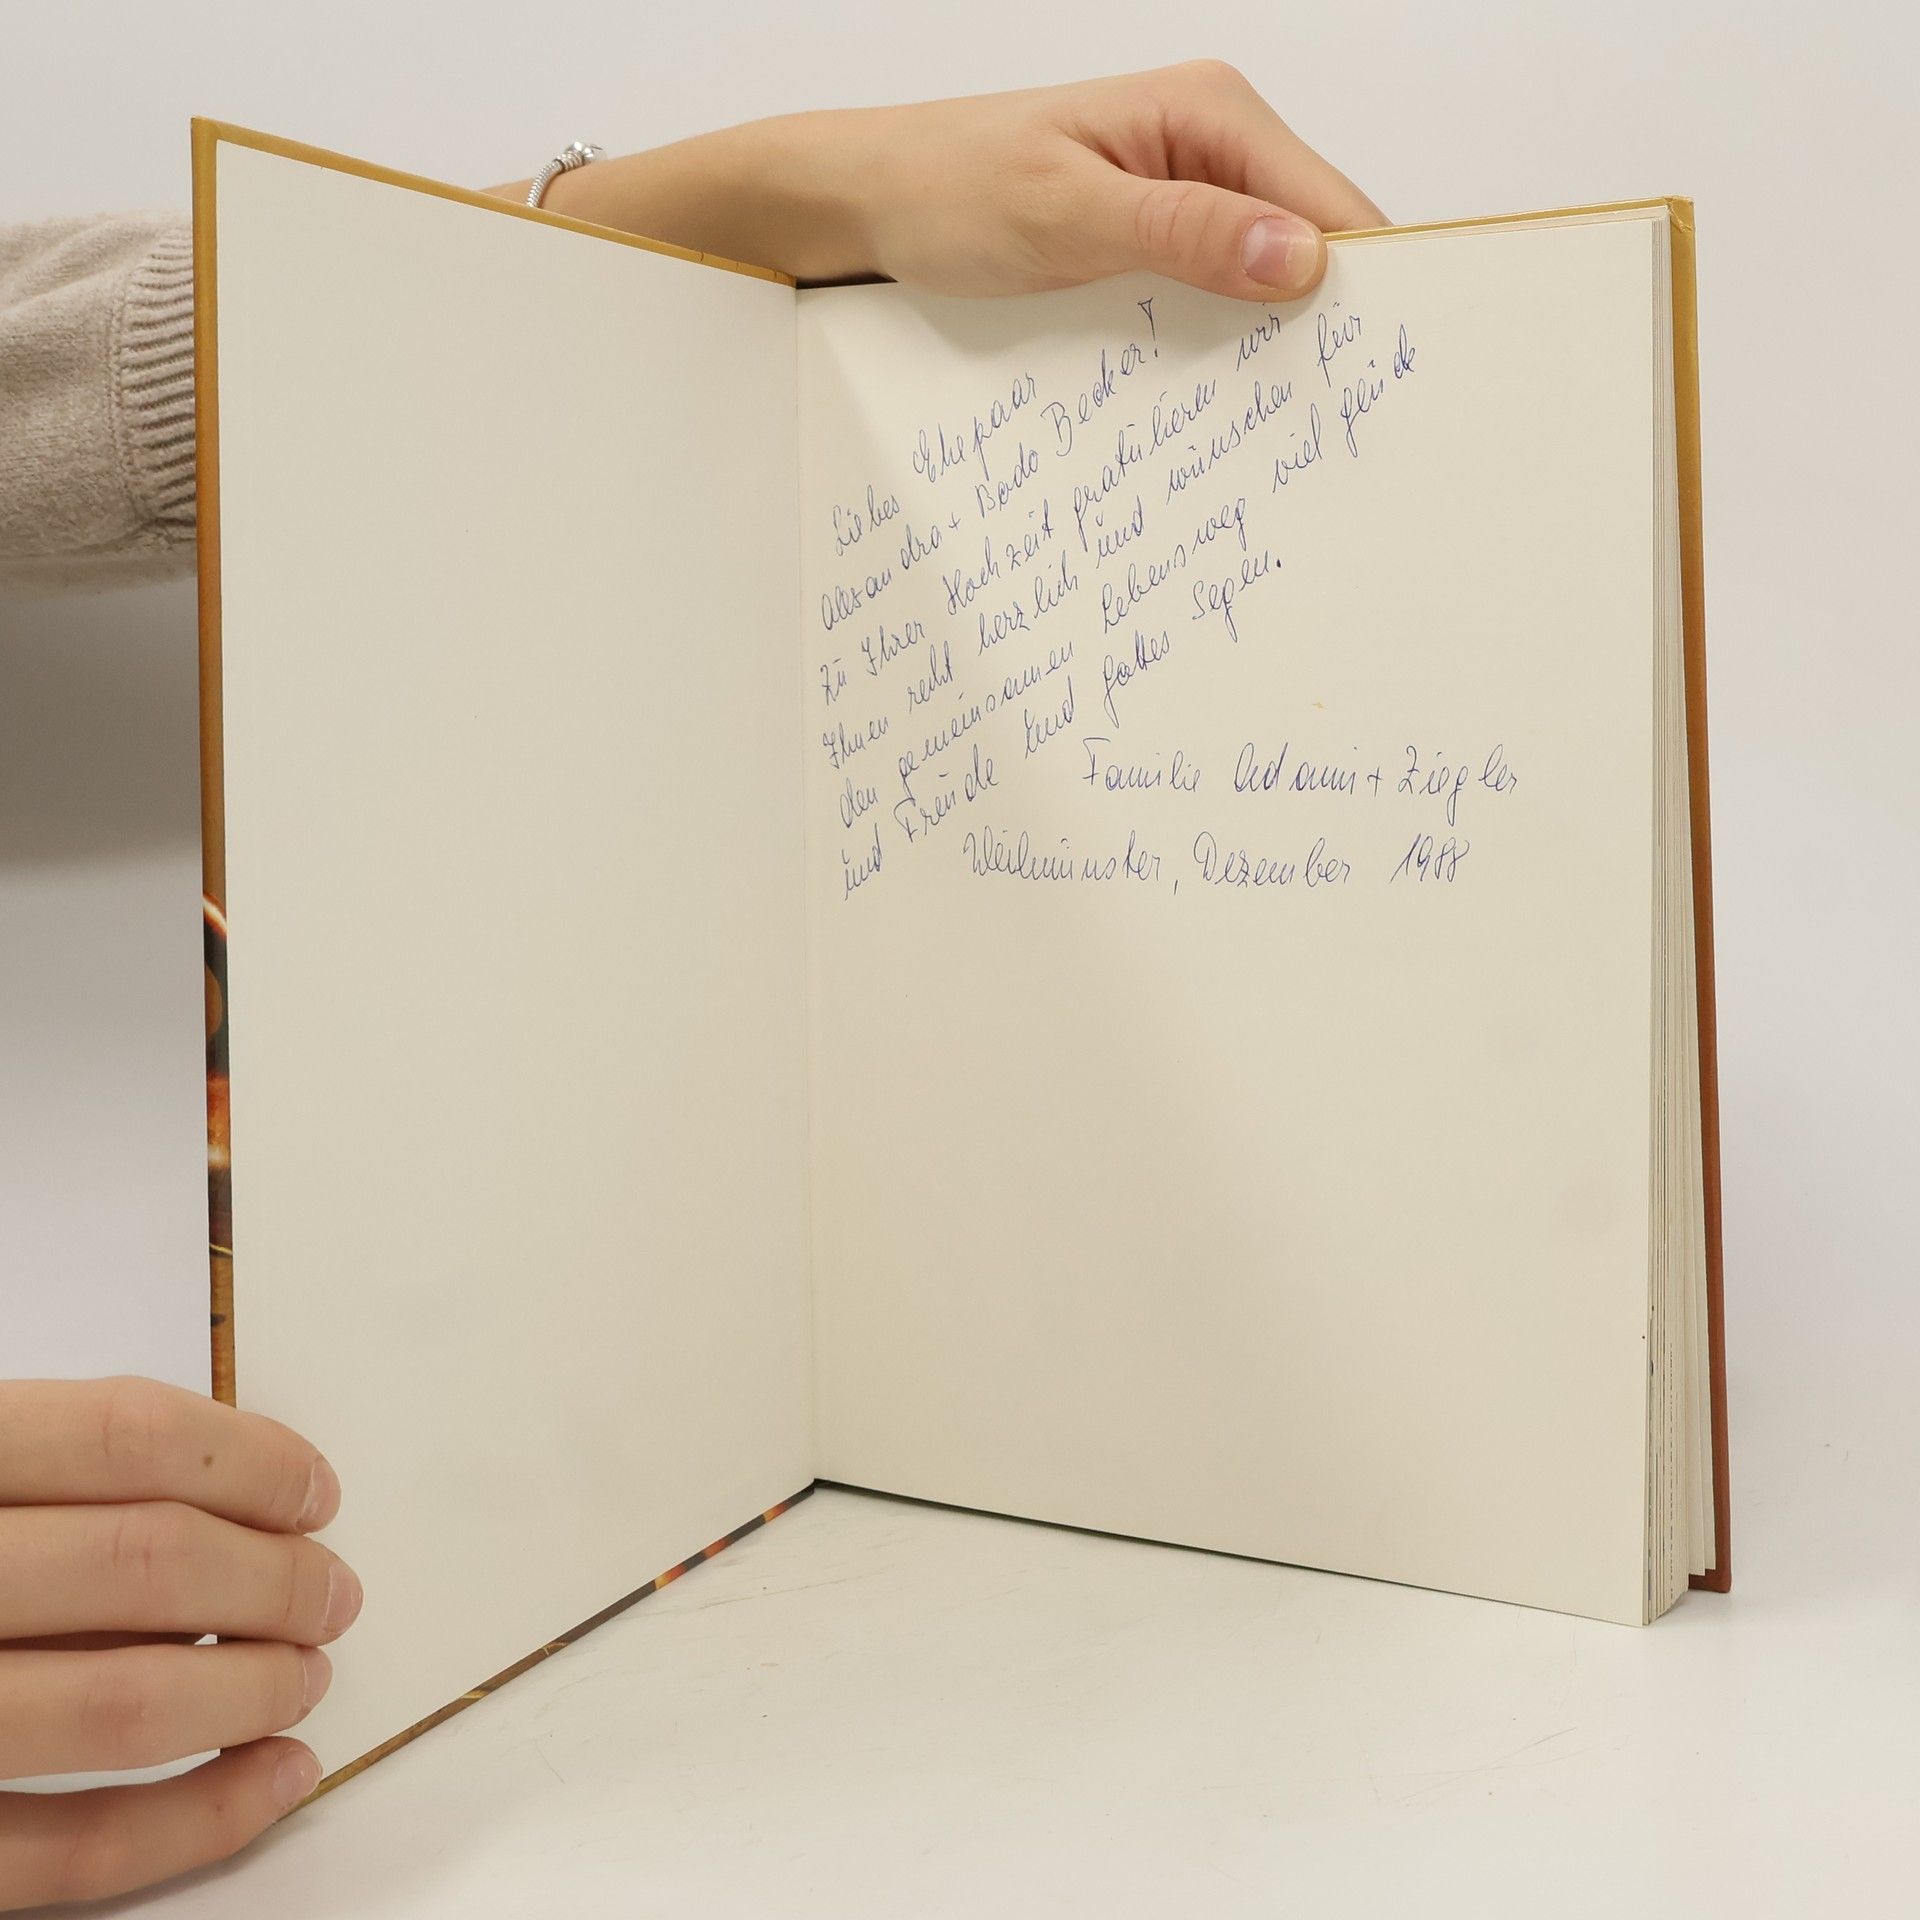 Liebes Ehepaar
Alexandra + Bodo Becker!
Zu Ihrer Hochzeit gratulieren wir
Ihnen recht herzlich und wünschen für
den gemeinsamen Lebensweg viel Glück
und Freude und Gottes Segen.
Familie Adami + Ziegler
Weilmünster, Dezember 1988